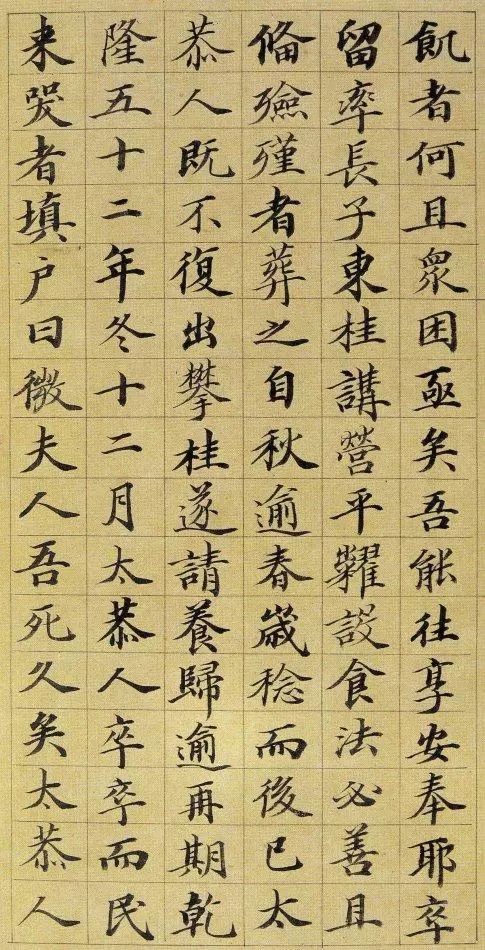 飢者何且眾困亟矣吾能往享安奉耶卒
留率長子東桂講營平糶設食法必善且
俻殮殣者葬之自秋逾春歲稔而後已太
恭人既不復出攀桂遂請養歸逾再期乾
隆五十二年冬十二月太恭人卒卒而民
来哭者填户曰微夫人吾死久矣太恭人